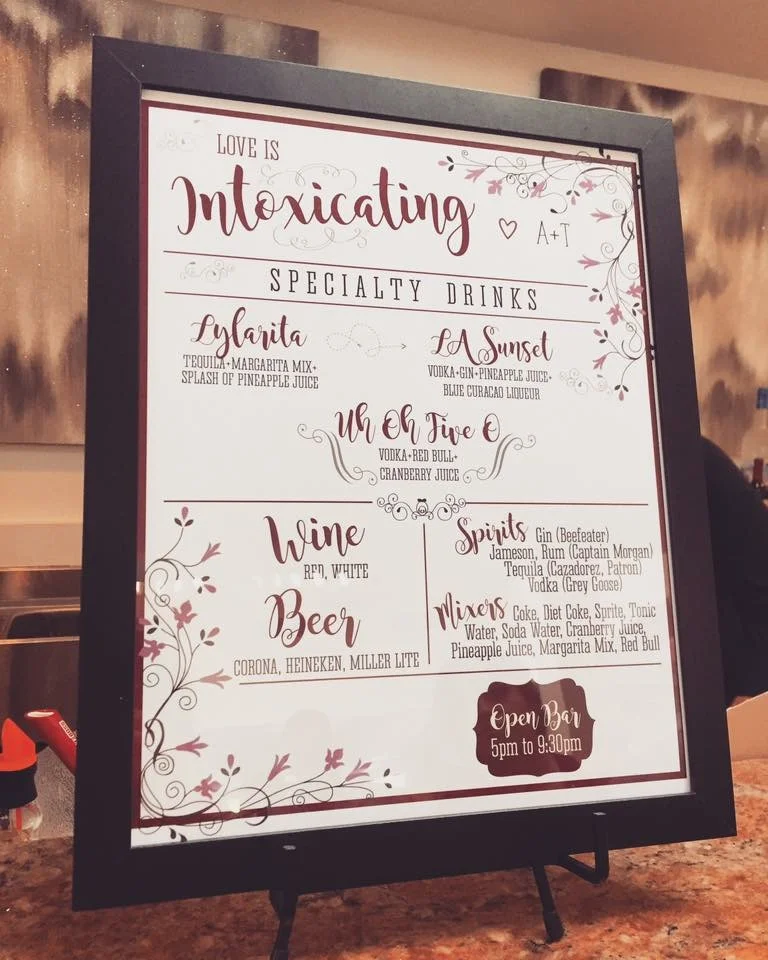 LOVE IS
Intoxicating ♡ A+T
SPECIALTY DRINKS
Lylarita
TEQUILA+MARGARITA MIX+
SPLASH OF PINEAPPLE JUICE
LA Sunset
VODKA+GIN+PINEAPPLE JUICE+
BLUE CURACAO LIQUEUR
Uh Oh Five O
VODKA+RED BULL+
CRANBERRY JUICE
Wine
RED, WHITE
Beer
CORONA, HEINEKEN, MILLER LITE
Spirits Gin (Beefeater)
Jameson, Rum (Captain Morgan)
Tequila (Cazadorez, Patron)
Vodka (Grey Goose)
Mixers Coke, Diet Coke, Sprite, Tonic
Water, Soda Water, Cranberry Juice,
Pineapple Juice, Margarita Mix, Red Bull
Open Bar
5pm to 9:30pm